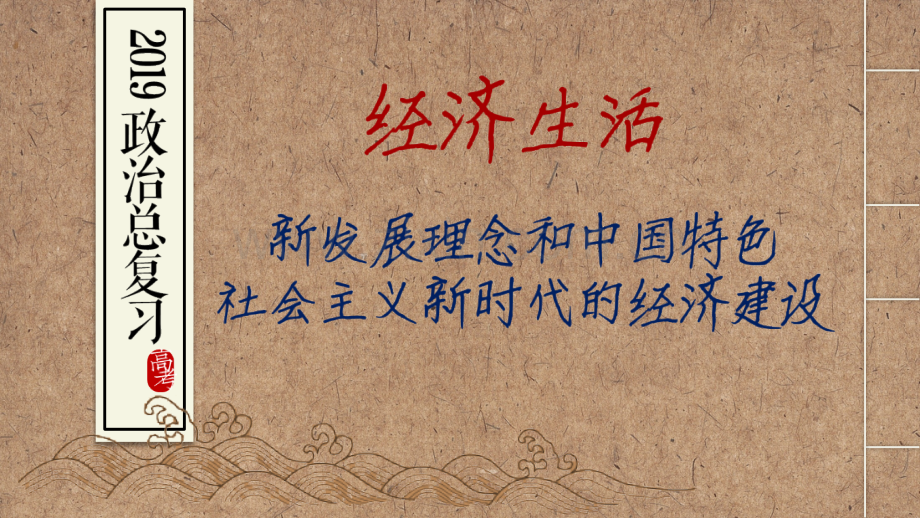 2019政治总复习
高考
经济生活
新发展理念和中国特色
社会主义新时代的经济建设